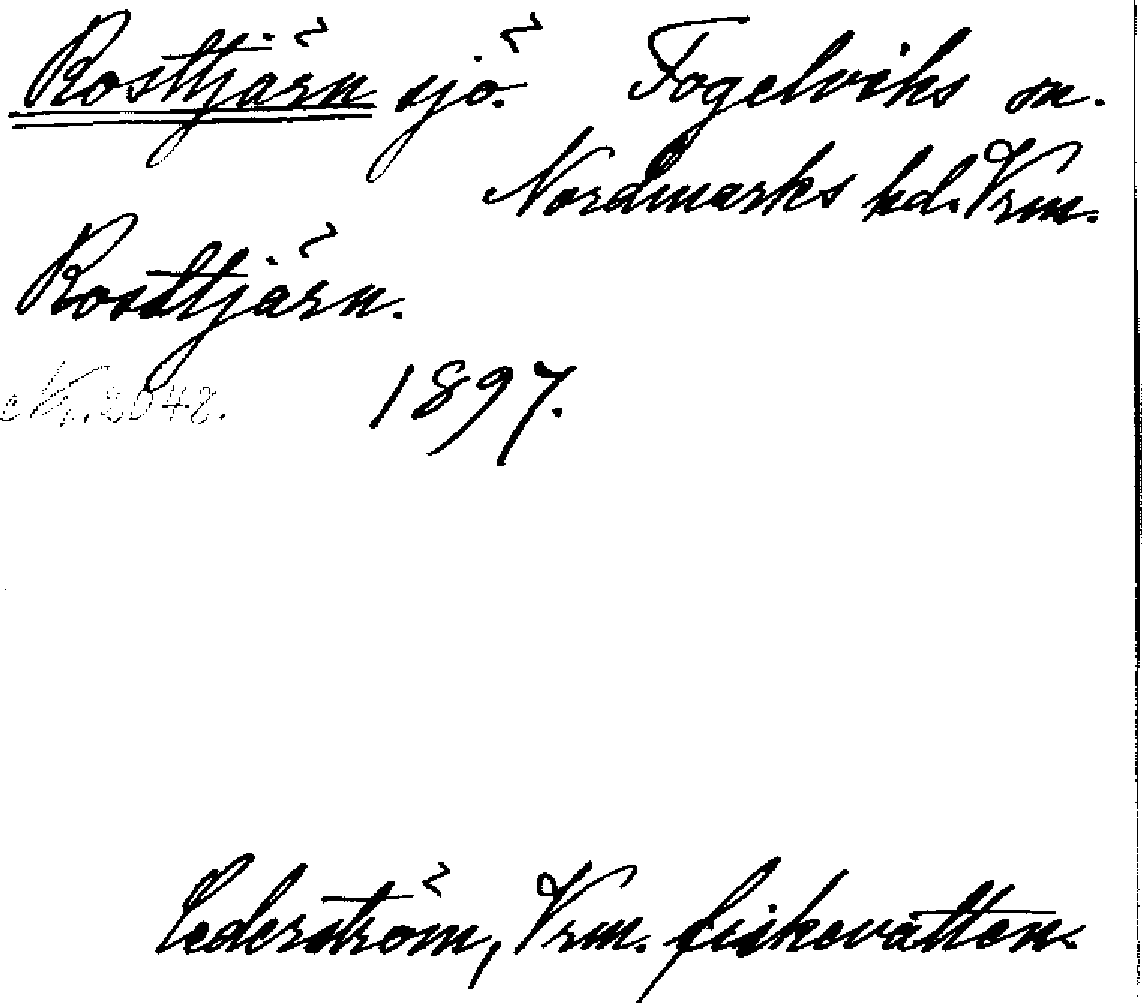 Rosttjärn sjö. Fogelviks sn.
Nordmarks hd. Vrm.
Rosttjärn.
Nr. 2048. 1897.
Cederström, Vrm. fiskevatten.